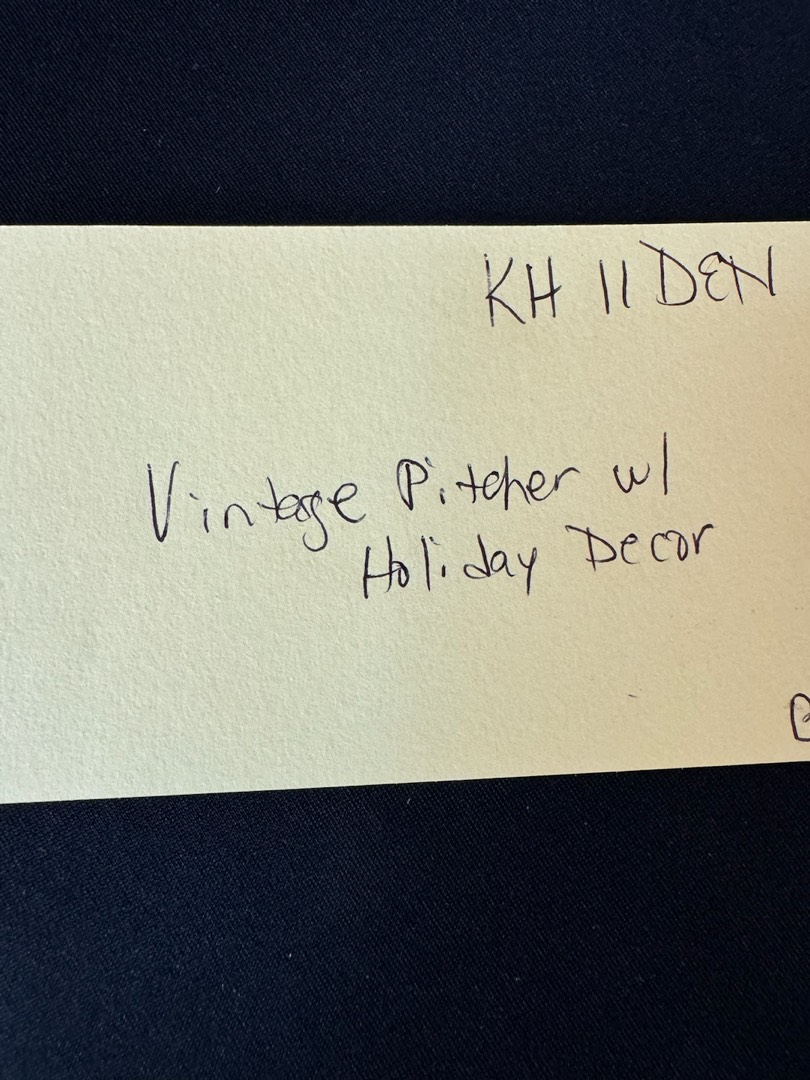 KH 11 DEN
Vintage Pitcher w/
Holiday Decor